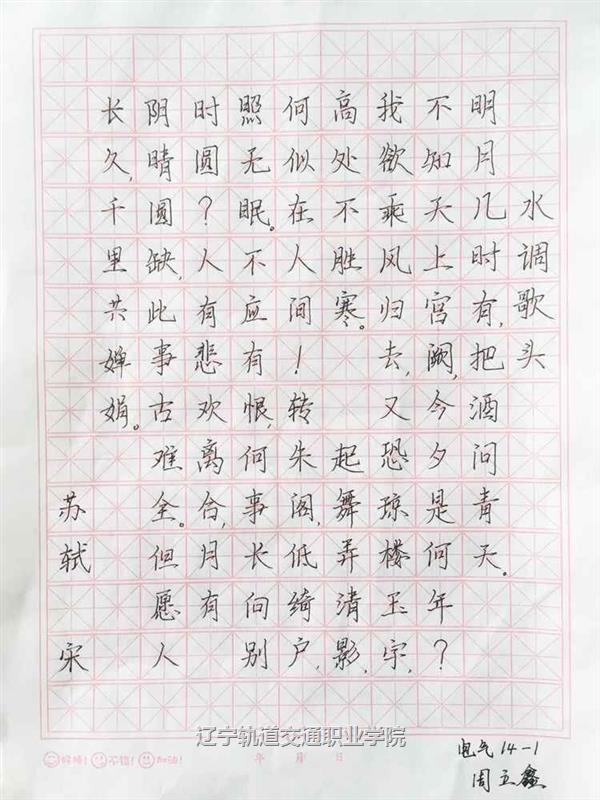 水调歌头
明月几时有,把酒问青天。
不知天上宫阙,今夕是何年?
我欲乘风归去,又恐琼楼玉宇,
高处不胜寒。 起舞弄清影,
何似在人间!转朱阁,低绮户,
照无眠。不应有恨,何事长向别
时圆?人有悲欢离合,月有
阴晴圆缺,此事古难全。但愿人
长久,千里共婵娟。
苏轼 宋
辽宁轨道交通职业学院
好棒! 不错! 加油! 年 月 日
电气14-1
周 鑫